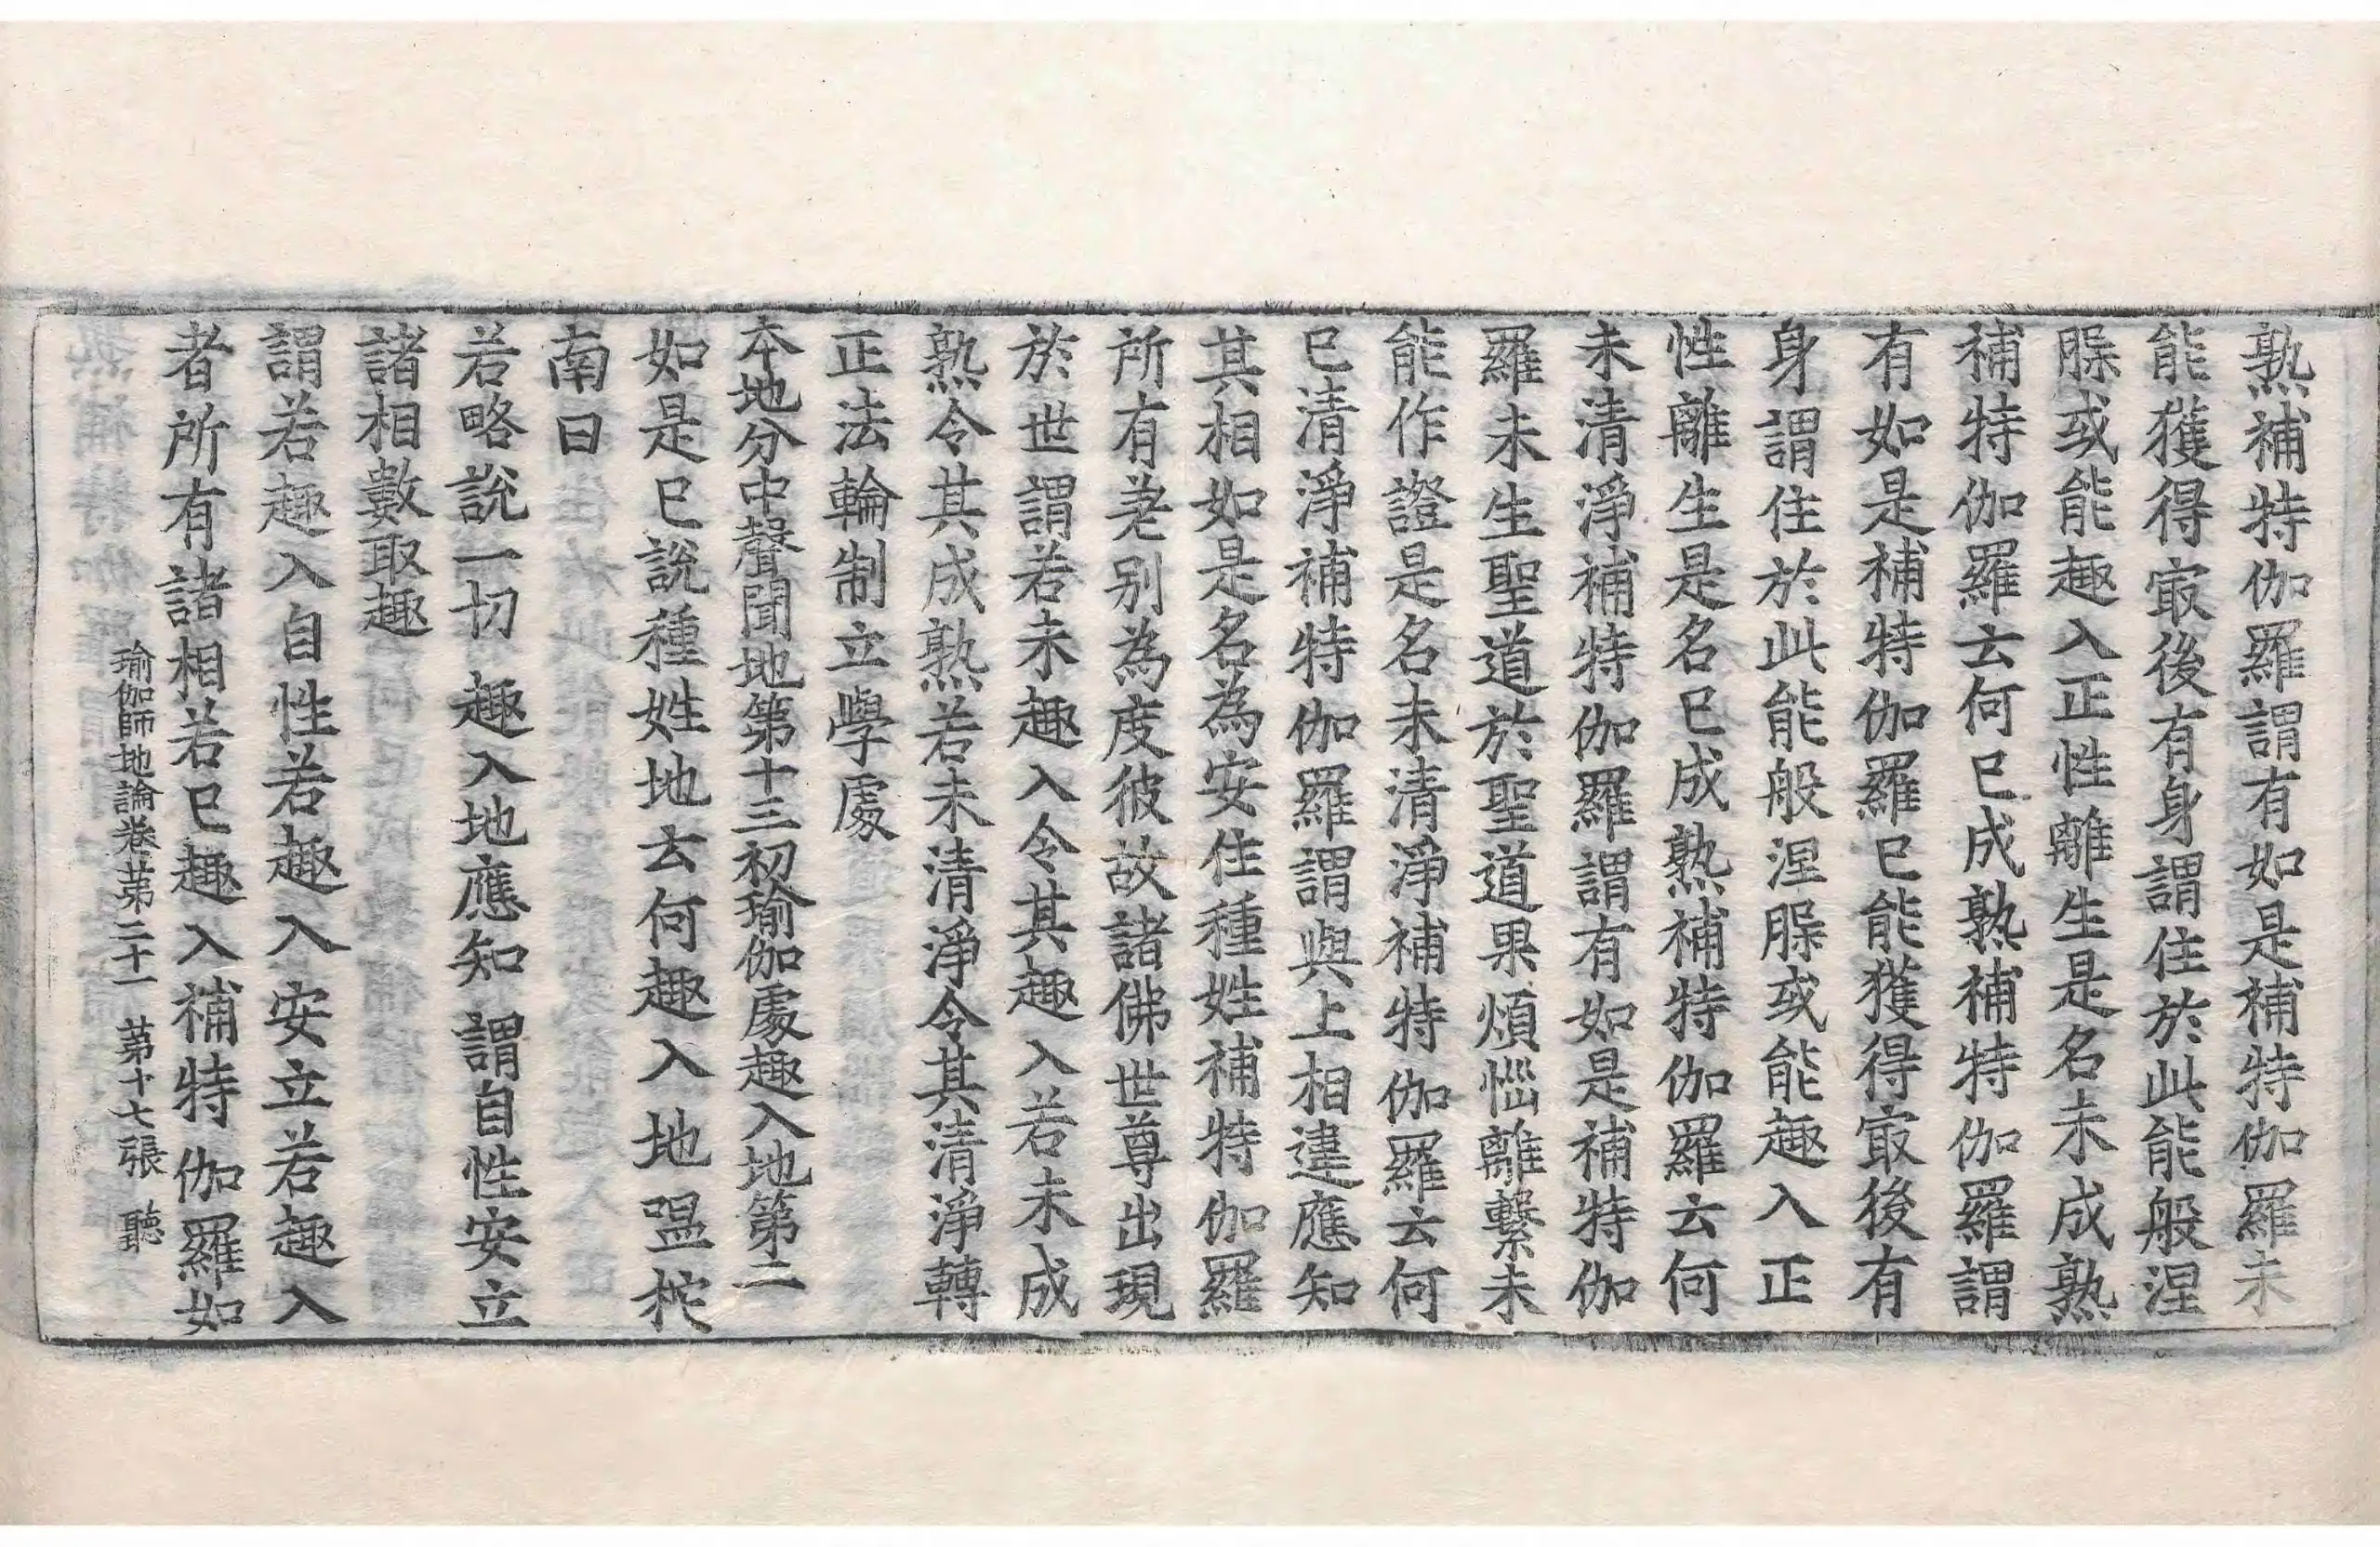 熟補特伽羅謂有如是補特伽羅未
能獲得㝡後有身謂住於此能般涅
脲或能趣入正性離生是名未成熟
補特伽羅云何已成熟補特伽羅謂
有如是補特伽羅已能獲得㝡後有
身謂住於此能般涅脲或能趣入正
性離生是名已成熟補特伽羅云何
未清淨補特伽羅謂有如是補特伽
羅未生聖道於聖道果煩惱離繫未
能作證是名未清淨補特伽羅云何
已清淨補特伽羅謂與上相違應知
其相如是名為安住種姓補特伽羅
所有差別為度彼故諸佛世尊出現
於世謂若未趣入令其趣入若未成
熟令其成熟若未清淨令其清淨轉
正法輪制立學處
本地分中聲聞地第十三初瑜伽處趣入地第二
如是已說種姓地云何趣入地嗢柁
南曰
若略說一切　趣入地應知　謂自性安立
諸相數取趣
謂若趣入自性若趣入安立若趣入
者所有諸相若已趣入補特伽羅如
瑜伽師地論卷苐二十一　苐十七張　聽